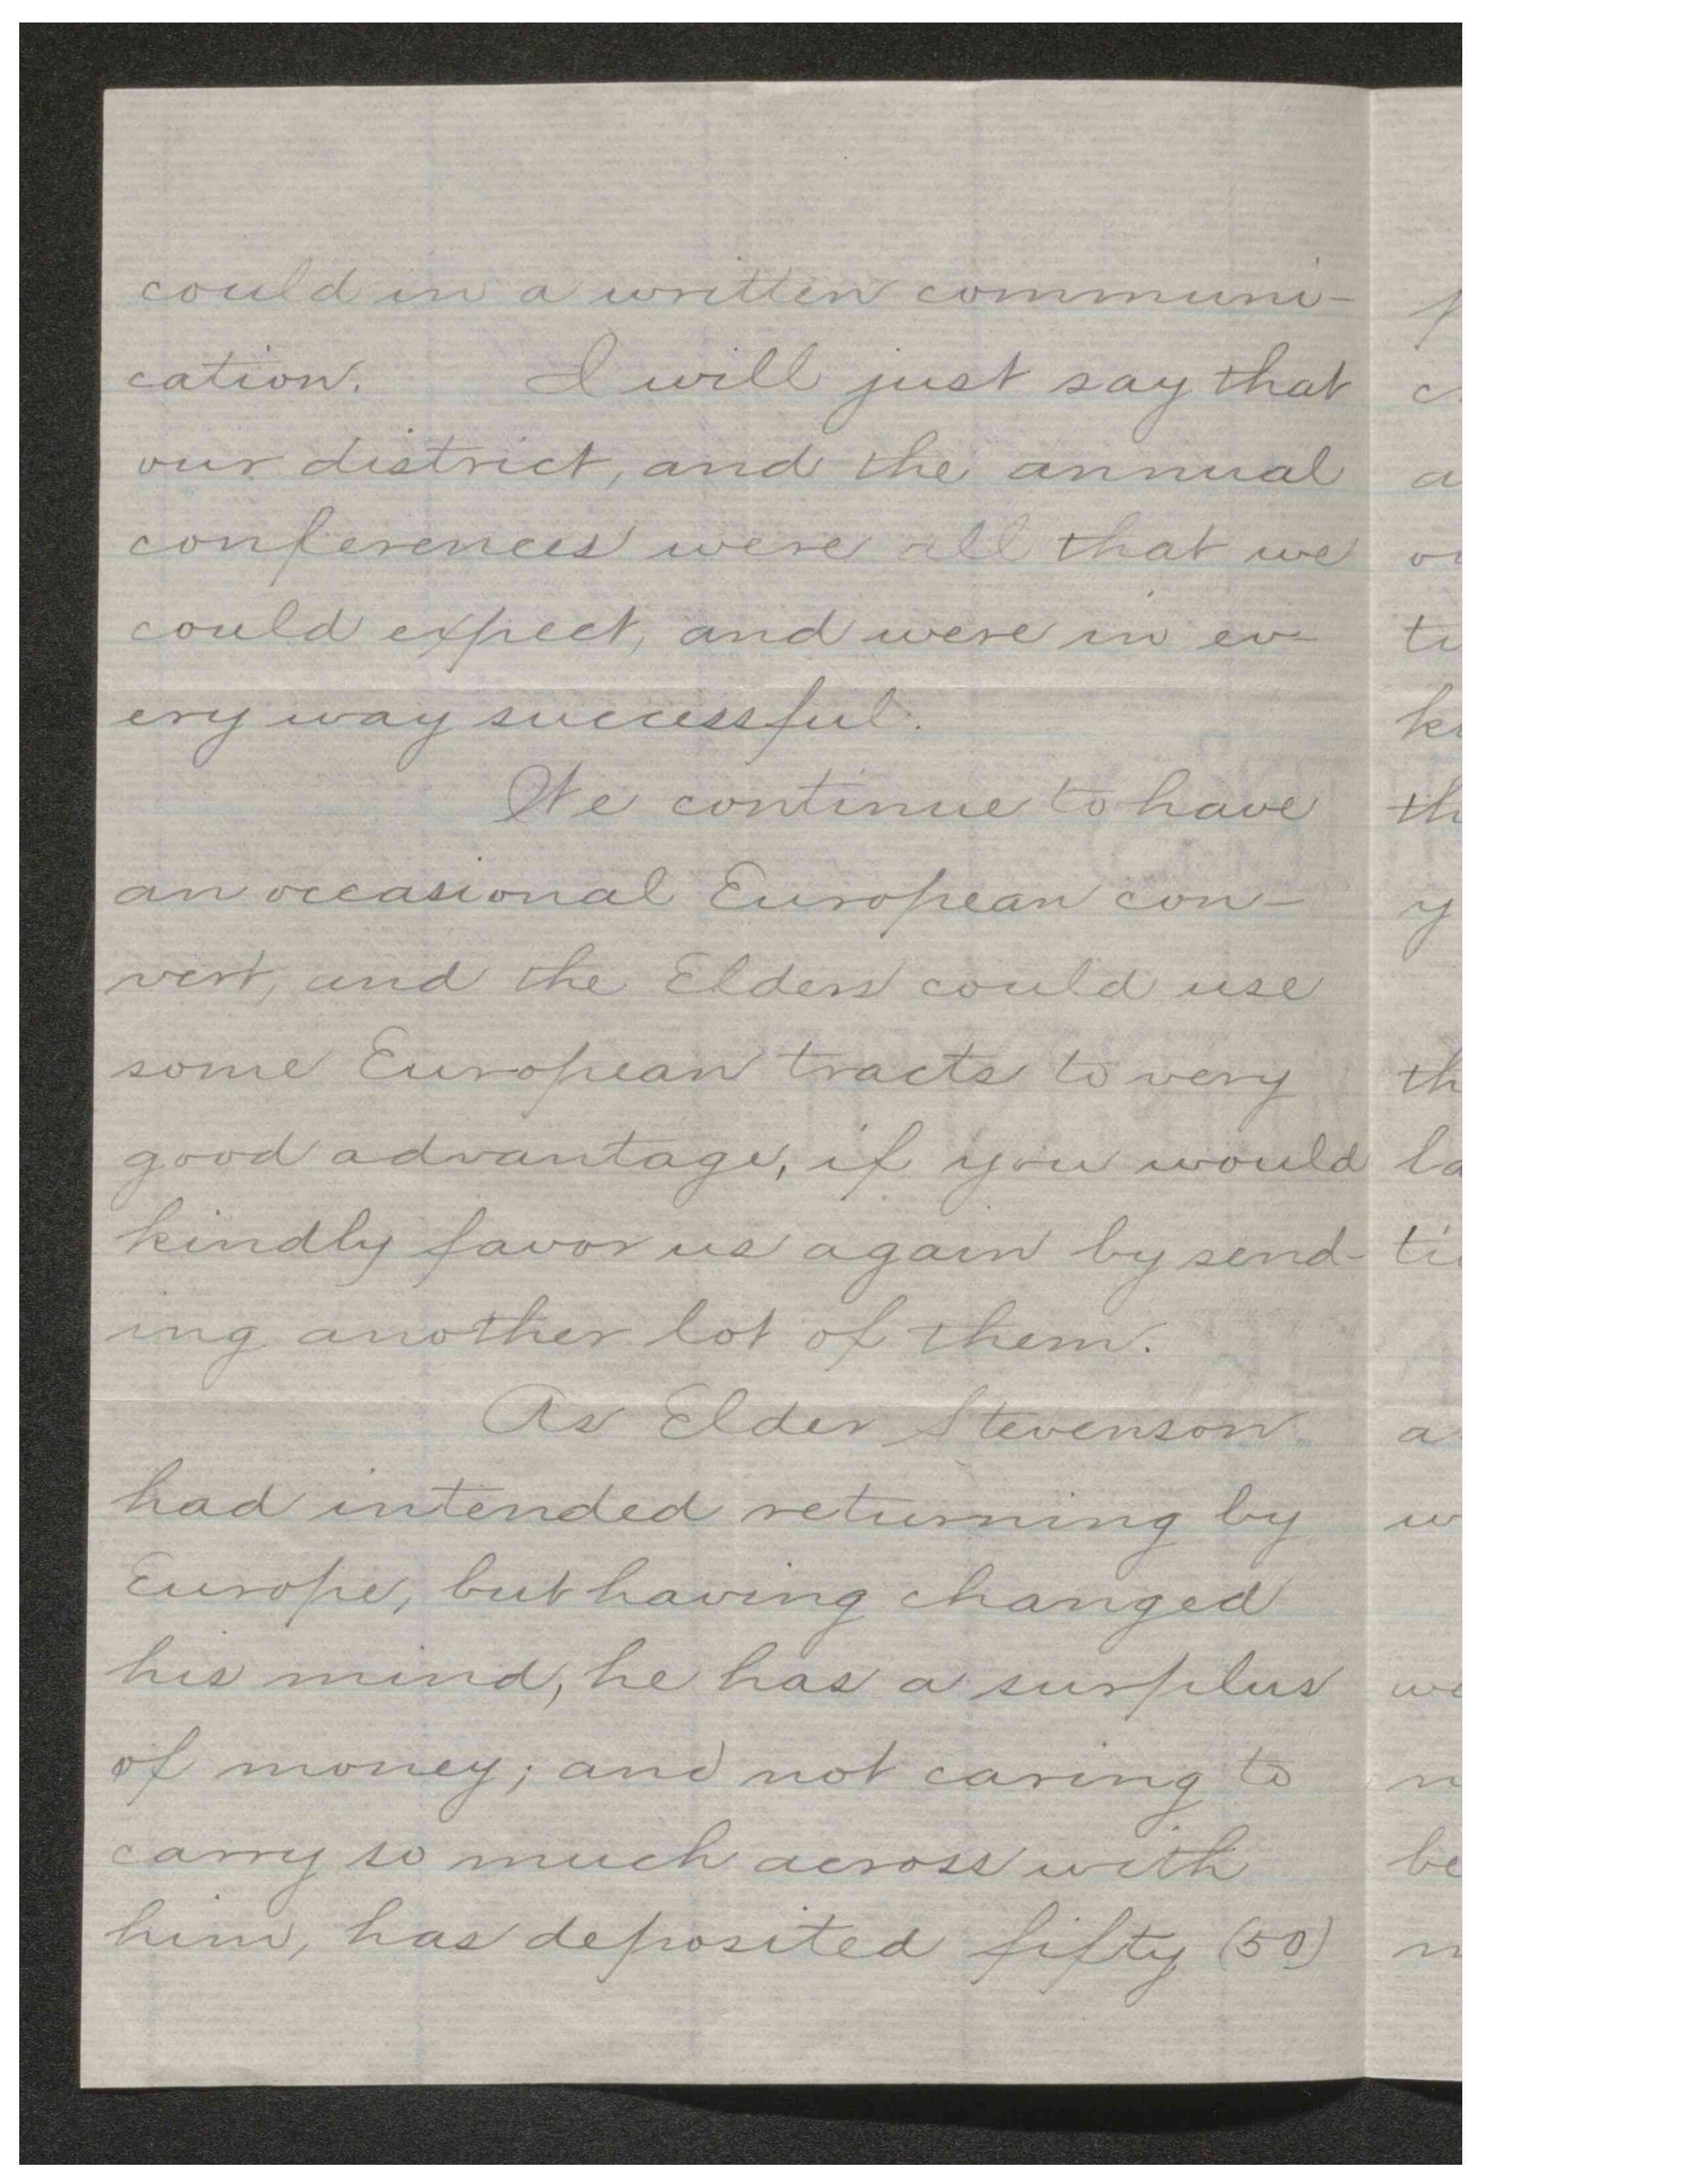 could in a written communi-
cation. I will just say that
our district, and the annual
conferences were all that we
could expect, and were in ev-
ery way successful.
We continue to have
an occasional European con-
vert, and the Elders could use
some European tracts to very
good advantage, if you would
kindly favor us again by send-
ing another lot of them.
As Elder Stevenson
had intended returning by
Europe, but having changed
his mind, he has a surplus
of money; and not caring to
carry so much across with
him, has deposited fifty (50)